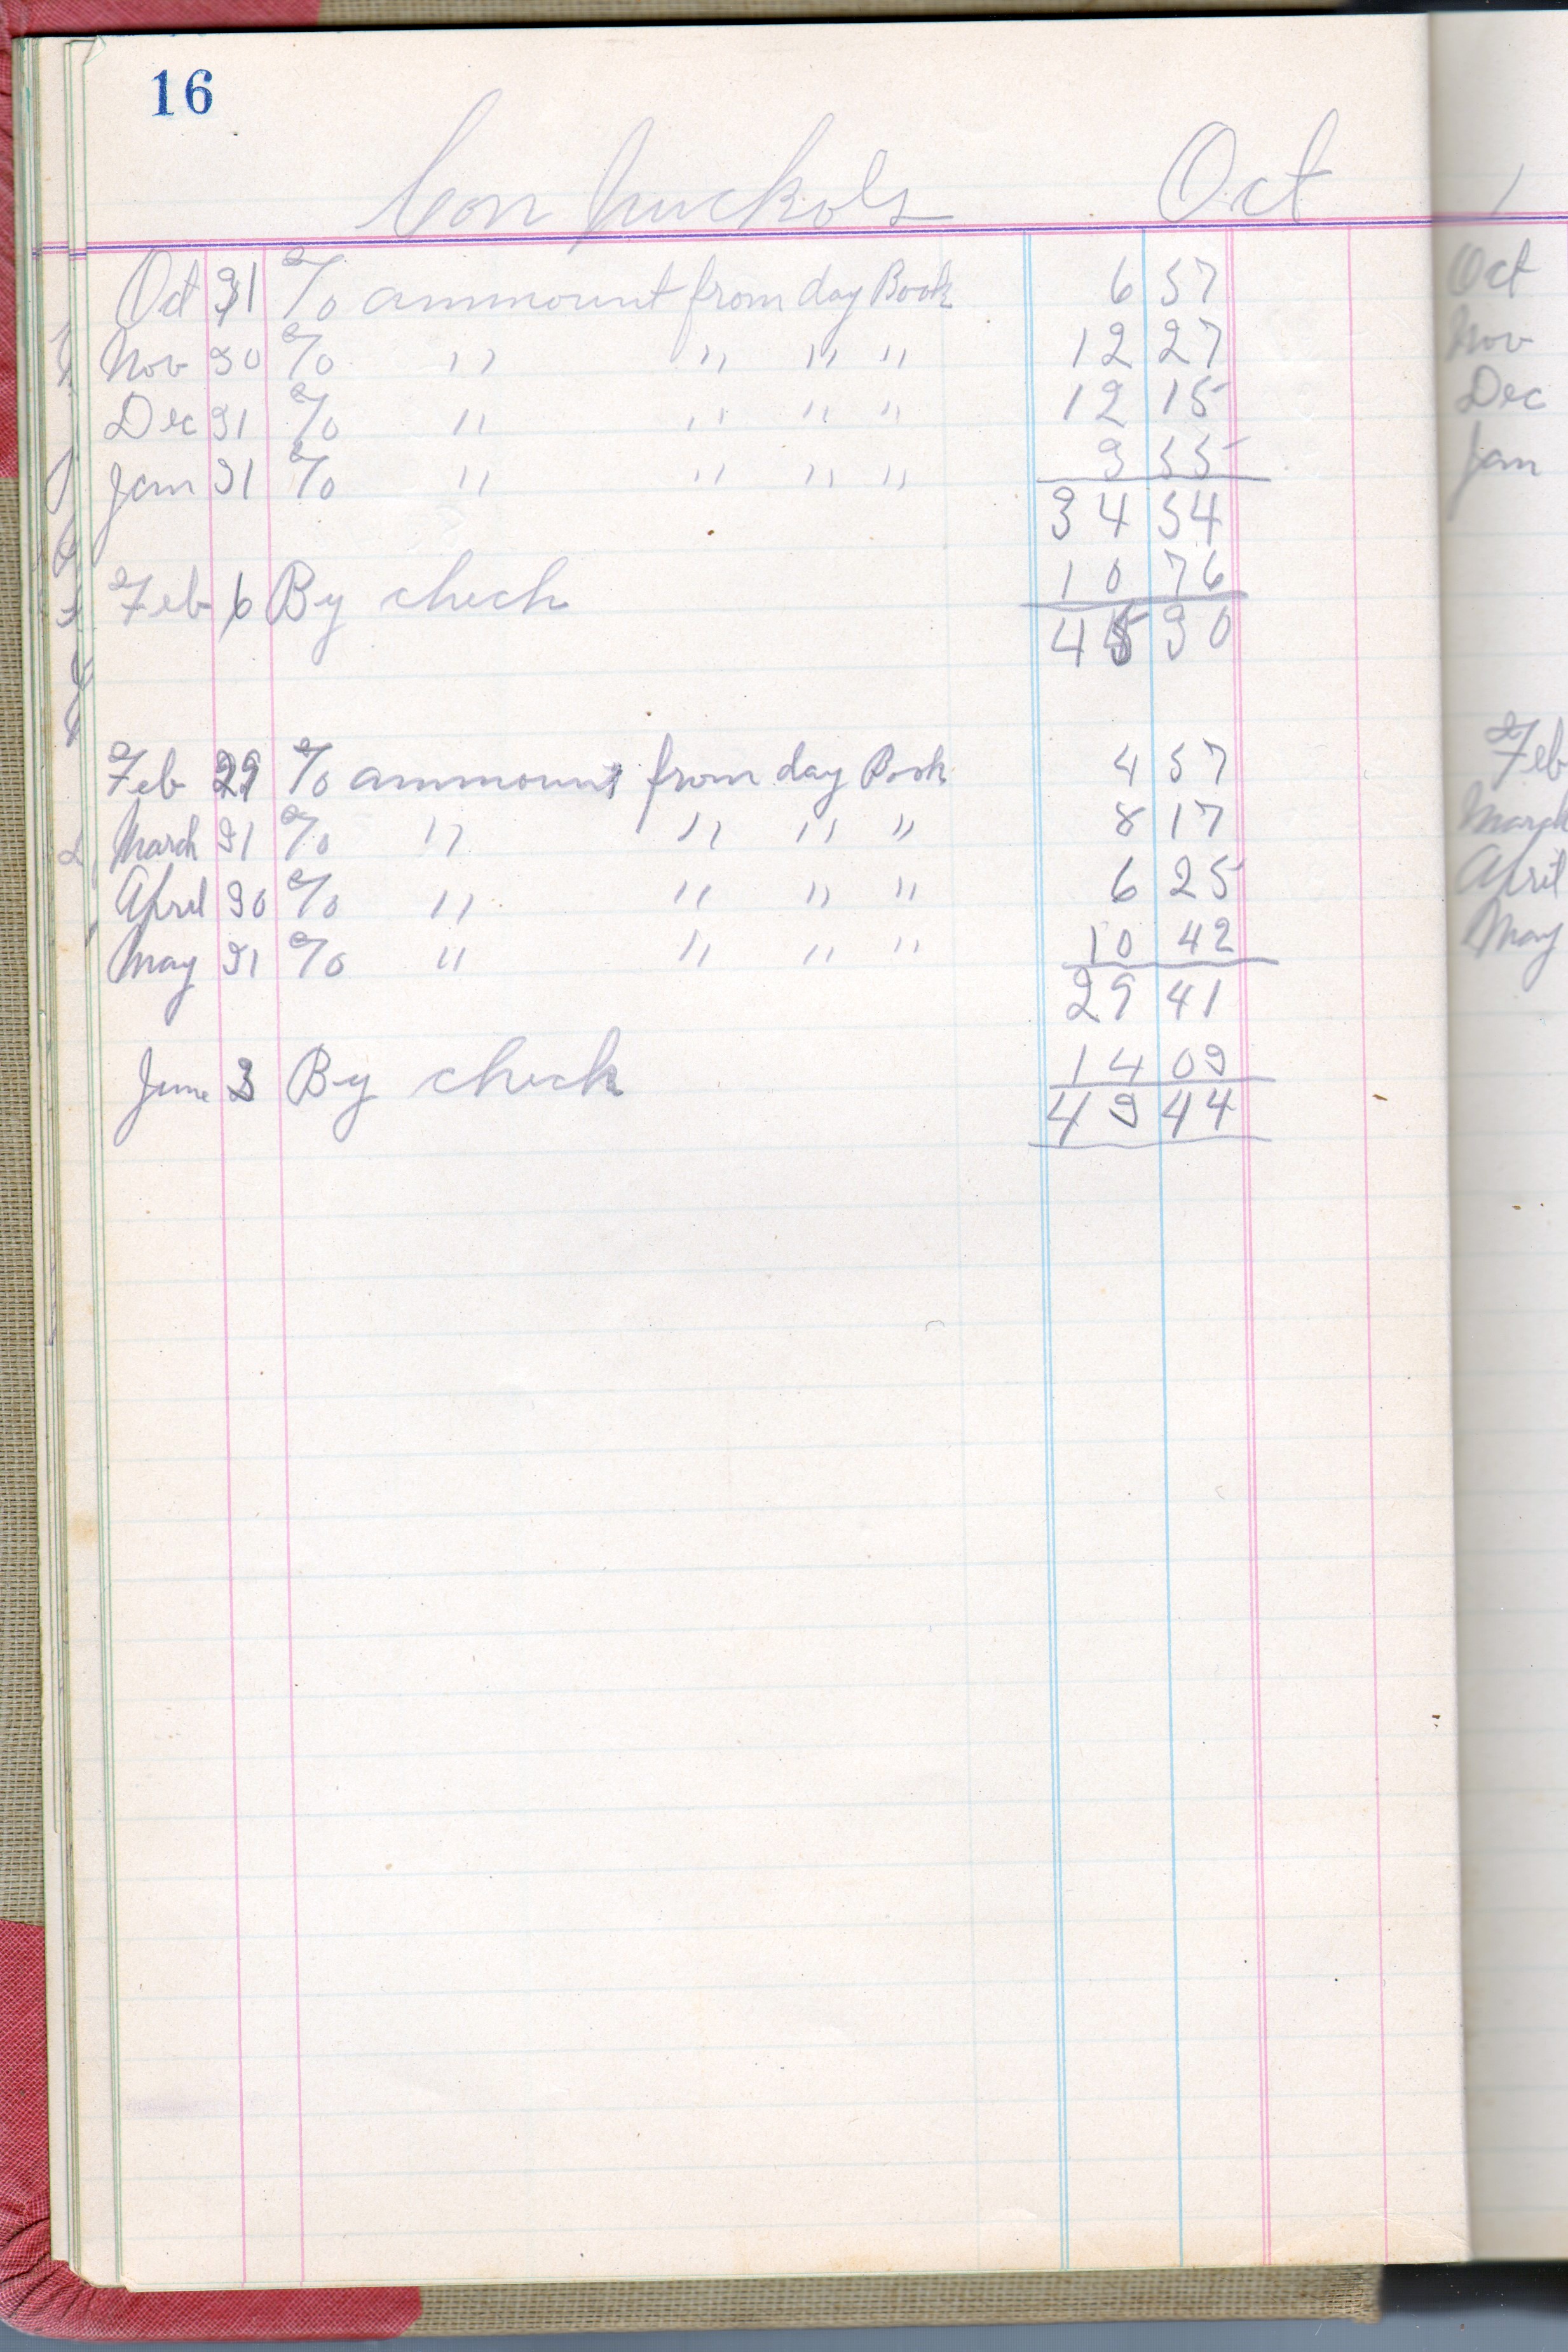 16
Con Nuckols Oct
Oct 31 % ammount from day Book 6 57
Nov 30 % " " " " 12 27
Dec 31 % " " " " 12 15
Jan 31 % " " " " 3 55
34 54
Feb 6 By check 10 76
45 30
Feb 29 % ammount from day Book 4 57
March 31 % " " " " 8 17
April 30 % " " " " 6 25
May 31 % " " " " 10 42
29 41
June 3 By check 14 03
43 44
Oct
Nov
Dec
Jan
Feb
March
April
May